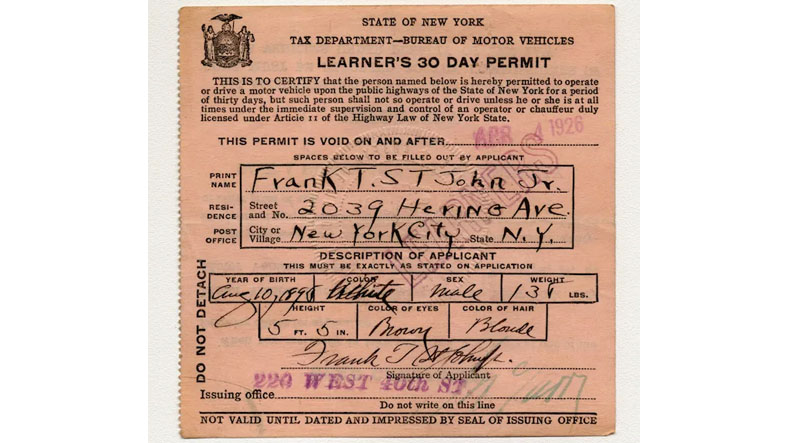 STATE OF NEW YORK
TAX DEPARTMENT—BUREAU OF MOTOR VEHICLES
LEARNER'S 30 DAY PERMIT
THIS IS TO CERTIFY that the person named below is hereby permitted to operate
or drive a motor vehicle upon the public highways of the State of New York for a period
of thirty days, but such person shall not so operate or drive unless he or she is at all
times under the immediate supervision and control of an operator or chauffeur duly
licensed under Article 11 of the Highway Law of New York State.
THIS PERMIT IS VOID ON AND AFTER APR 4 1926
SPACES BELOW TO BE FILLED OUT BY APPLICANT
PRINT NAME Frank T. ST John Jr.
RESIDENCE Street and No. 2039 Hering Ave.
POST OFFICE City or Village New York City State N.Y.
LEARNERS
DESCRIPTION OF APPLICANT
THIS MUST BE EXACTLY AS STATED ON APPLICATION
YEAR OF BIRTH COLOR SEX WEIGHT
Aug 10, White Male 131 LBS.
HEIGHT COLOR OF EYES COLOR OF HAIR
5 FT. 5 IN. Brown Blonde
DO NOT DETACH
Frank T St John Jr.
Signature of Applicant
220 WEST 40th ST
Issuing office
Do not write on this line
NOT VALID UNTIL DATED AND IMPRESSED BY SEAL OF ISSUING OFFICE